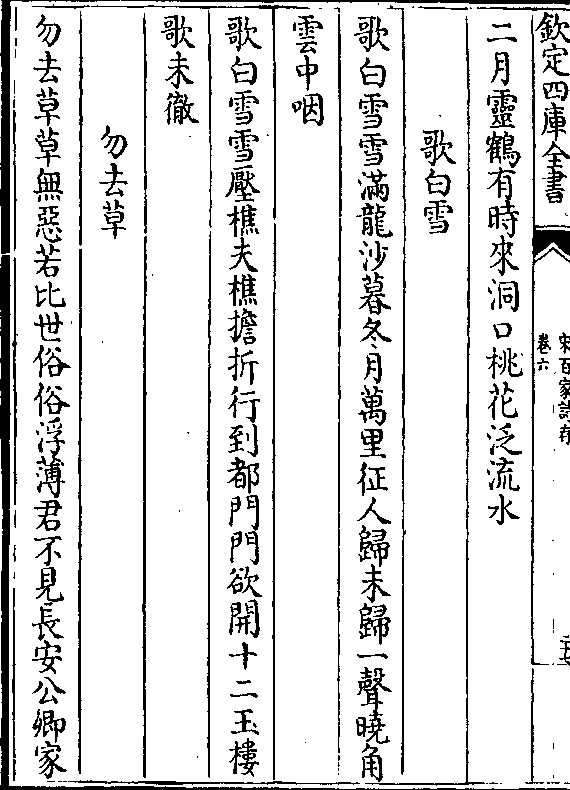 欽定四庫全書
宋百家詩存
卷六
二月靈鶴有時來洞口桃花泛流水
歌白雪
歌白雪雪滿龍沙暮冬月萬里征人歸未歸一聲曉角
雲中咽
歌白雪雪壓樵夫樵擔折行到都門門欲開十二玉樓
歌未徹
勿去草
勿去草草無惡若比世俗俗浮薄君不見長安公卿家